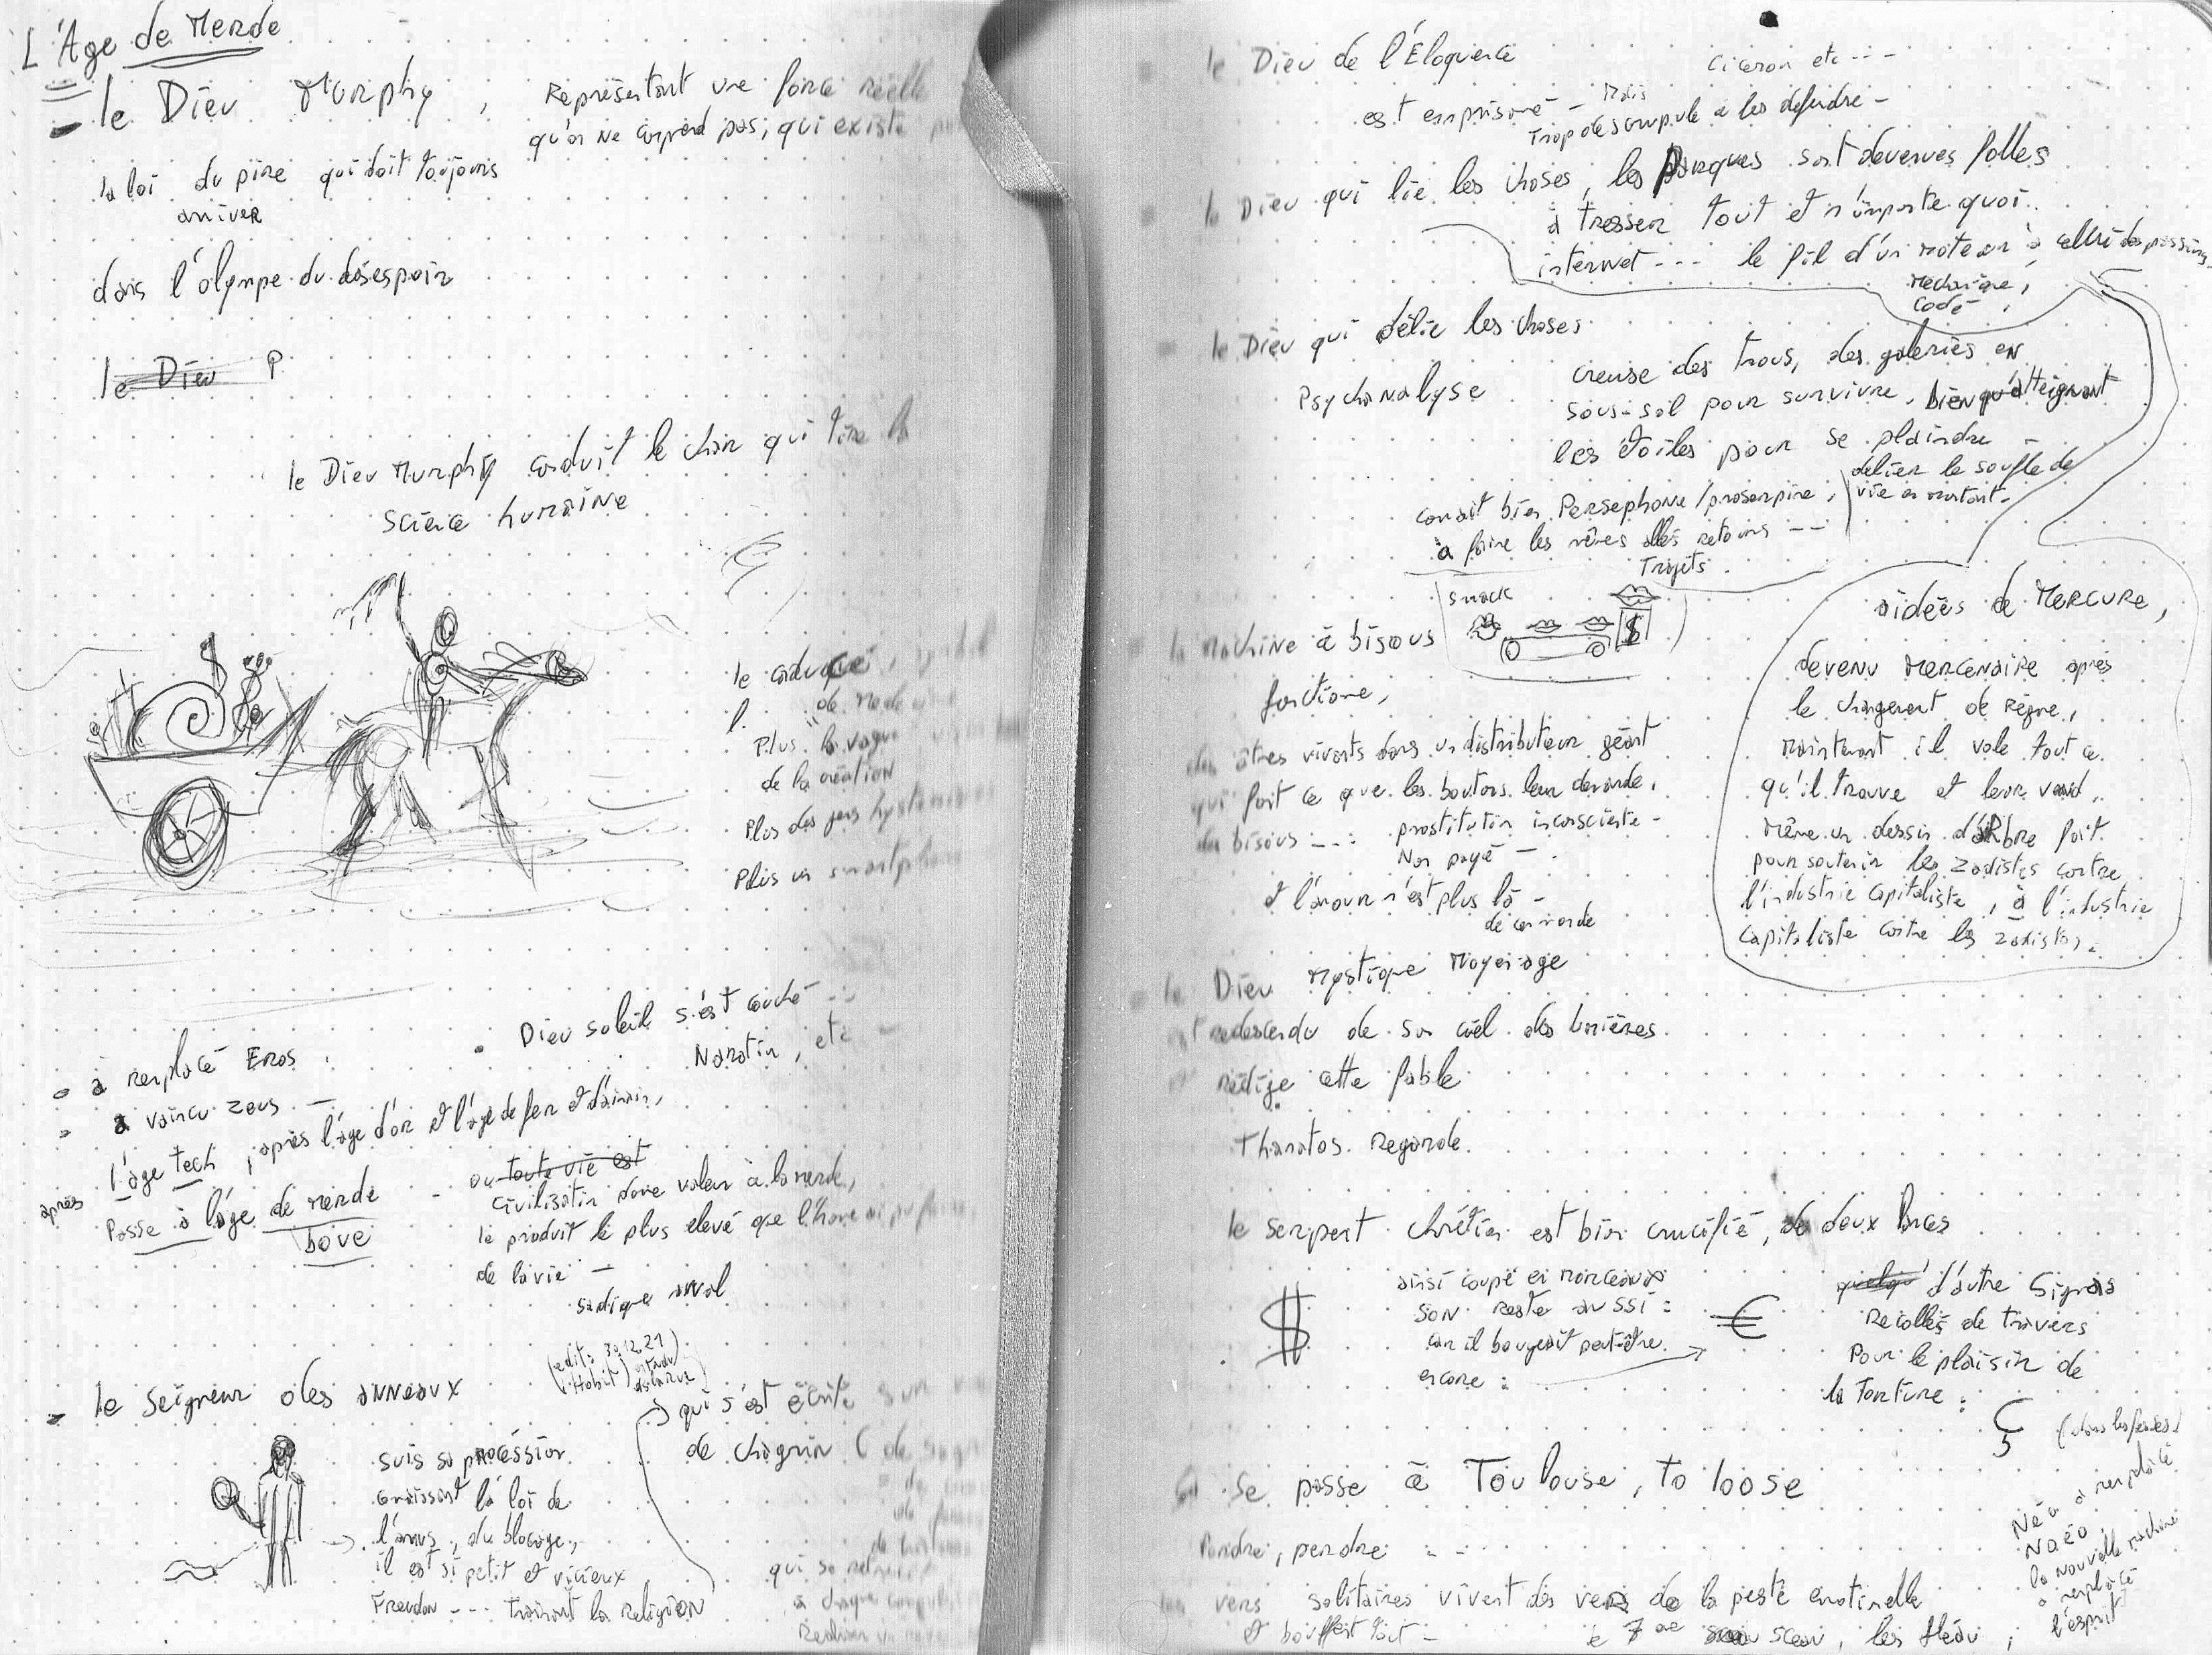 L'Age de Merde
le Dieu Murphy, Représentant une force réelle
qu'on ne comprend pas, qui existe
la loi du pire qui doit toujours
arriver
dans l'olympe du désespoir
le Dieu P
le Dieu Murphy conduit le char qui tire la
science humaine
le caducé
de
Plus la vague
de la création
Plus des gens hystériques
Plus un smartphone
à remplacé Eros
à vaincu Zeus —
Dieu soleil s'est couché --
Narotin, etc —
après l'âge tech, après l'âge d'or et l'âge de fer et d'airain,
Passe à l'âge de merde
boue
ou toute vie est
civilisation donne valeur à la merde,
le produit le plus elevé que l'homme ai pu faire
de la vie —
sadique anal
- le seigneur des anneaux
(edit: 30.12.21)
suis sa procéssion
connaissant la loi de
l'anus, du blocage,
il est si petit et vicieux
traînant la religion
qui s'est écrite sur
de chagrin (de
qui se
à chaque
le Dieu de l'Éloquence
Ciceron etc ---
est emprisonné - Mais
trop de scrupule a les défendre -
le Dieu qui lie les choses, les Parques sont devenues folles
à tresser tout et n'importe quoi..
internet --- le fil d'un moteur à celui des passions
mechanique,
code
le Dieu qui délie les choses
Psychanalyse
creuse des trous, des galeries en
sous-sol pour survivre, bien qu'atteignant
les étoiles pour se plaindre —
délier le souffle de
vie en montant -
connait bien Persephone/proserpine,
à faire les mêmes allés retours ---
Trajets.
smack
$
la machine à bisous
fonctionne,
des êtres vivants dans un distributeur géant
qui font ce que les boutons leur demande,
des bisous --- prostitution insconsciente -
Non payé —
et l'amour n'est plus là -
de ce monde
aidées de MERCURE,
devenu mercenaire après
le changement de Règne,
maintenant il vole tout ce
qu'il trouve et leur vend,
même un dessin d'aRbre fait
pour soutenir les zadistes contre
l'industrie capitaliste, à l'industrie
capitaliste contre les zadistes.
le Dieu mystique moyen-age
est redescendu de son ciel des lumières
et rédige cette fable
Thanatos. Regarde.
le serpent chrétien est bien crucifié, de deux lances
$
ainsi coupé en morceaux
son reste aussi :
car il bougeait peut-être
encore :
€
d'autre Signes
Recollés de travers
Pour le plaisir de
la torture :
Se passe à Toulouse, to loose
Perdre, perdre . -
les vers solitaires vivent des vers de la peste émotinelle
et bouffent tout -
le 7 ème sceau, les fléau ;
Néo a remplacé
Noéo,
la nouvelle machine
a remplacé
l'esprit